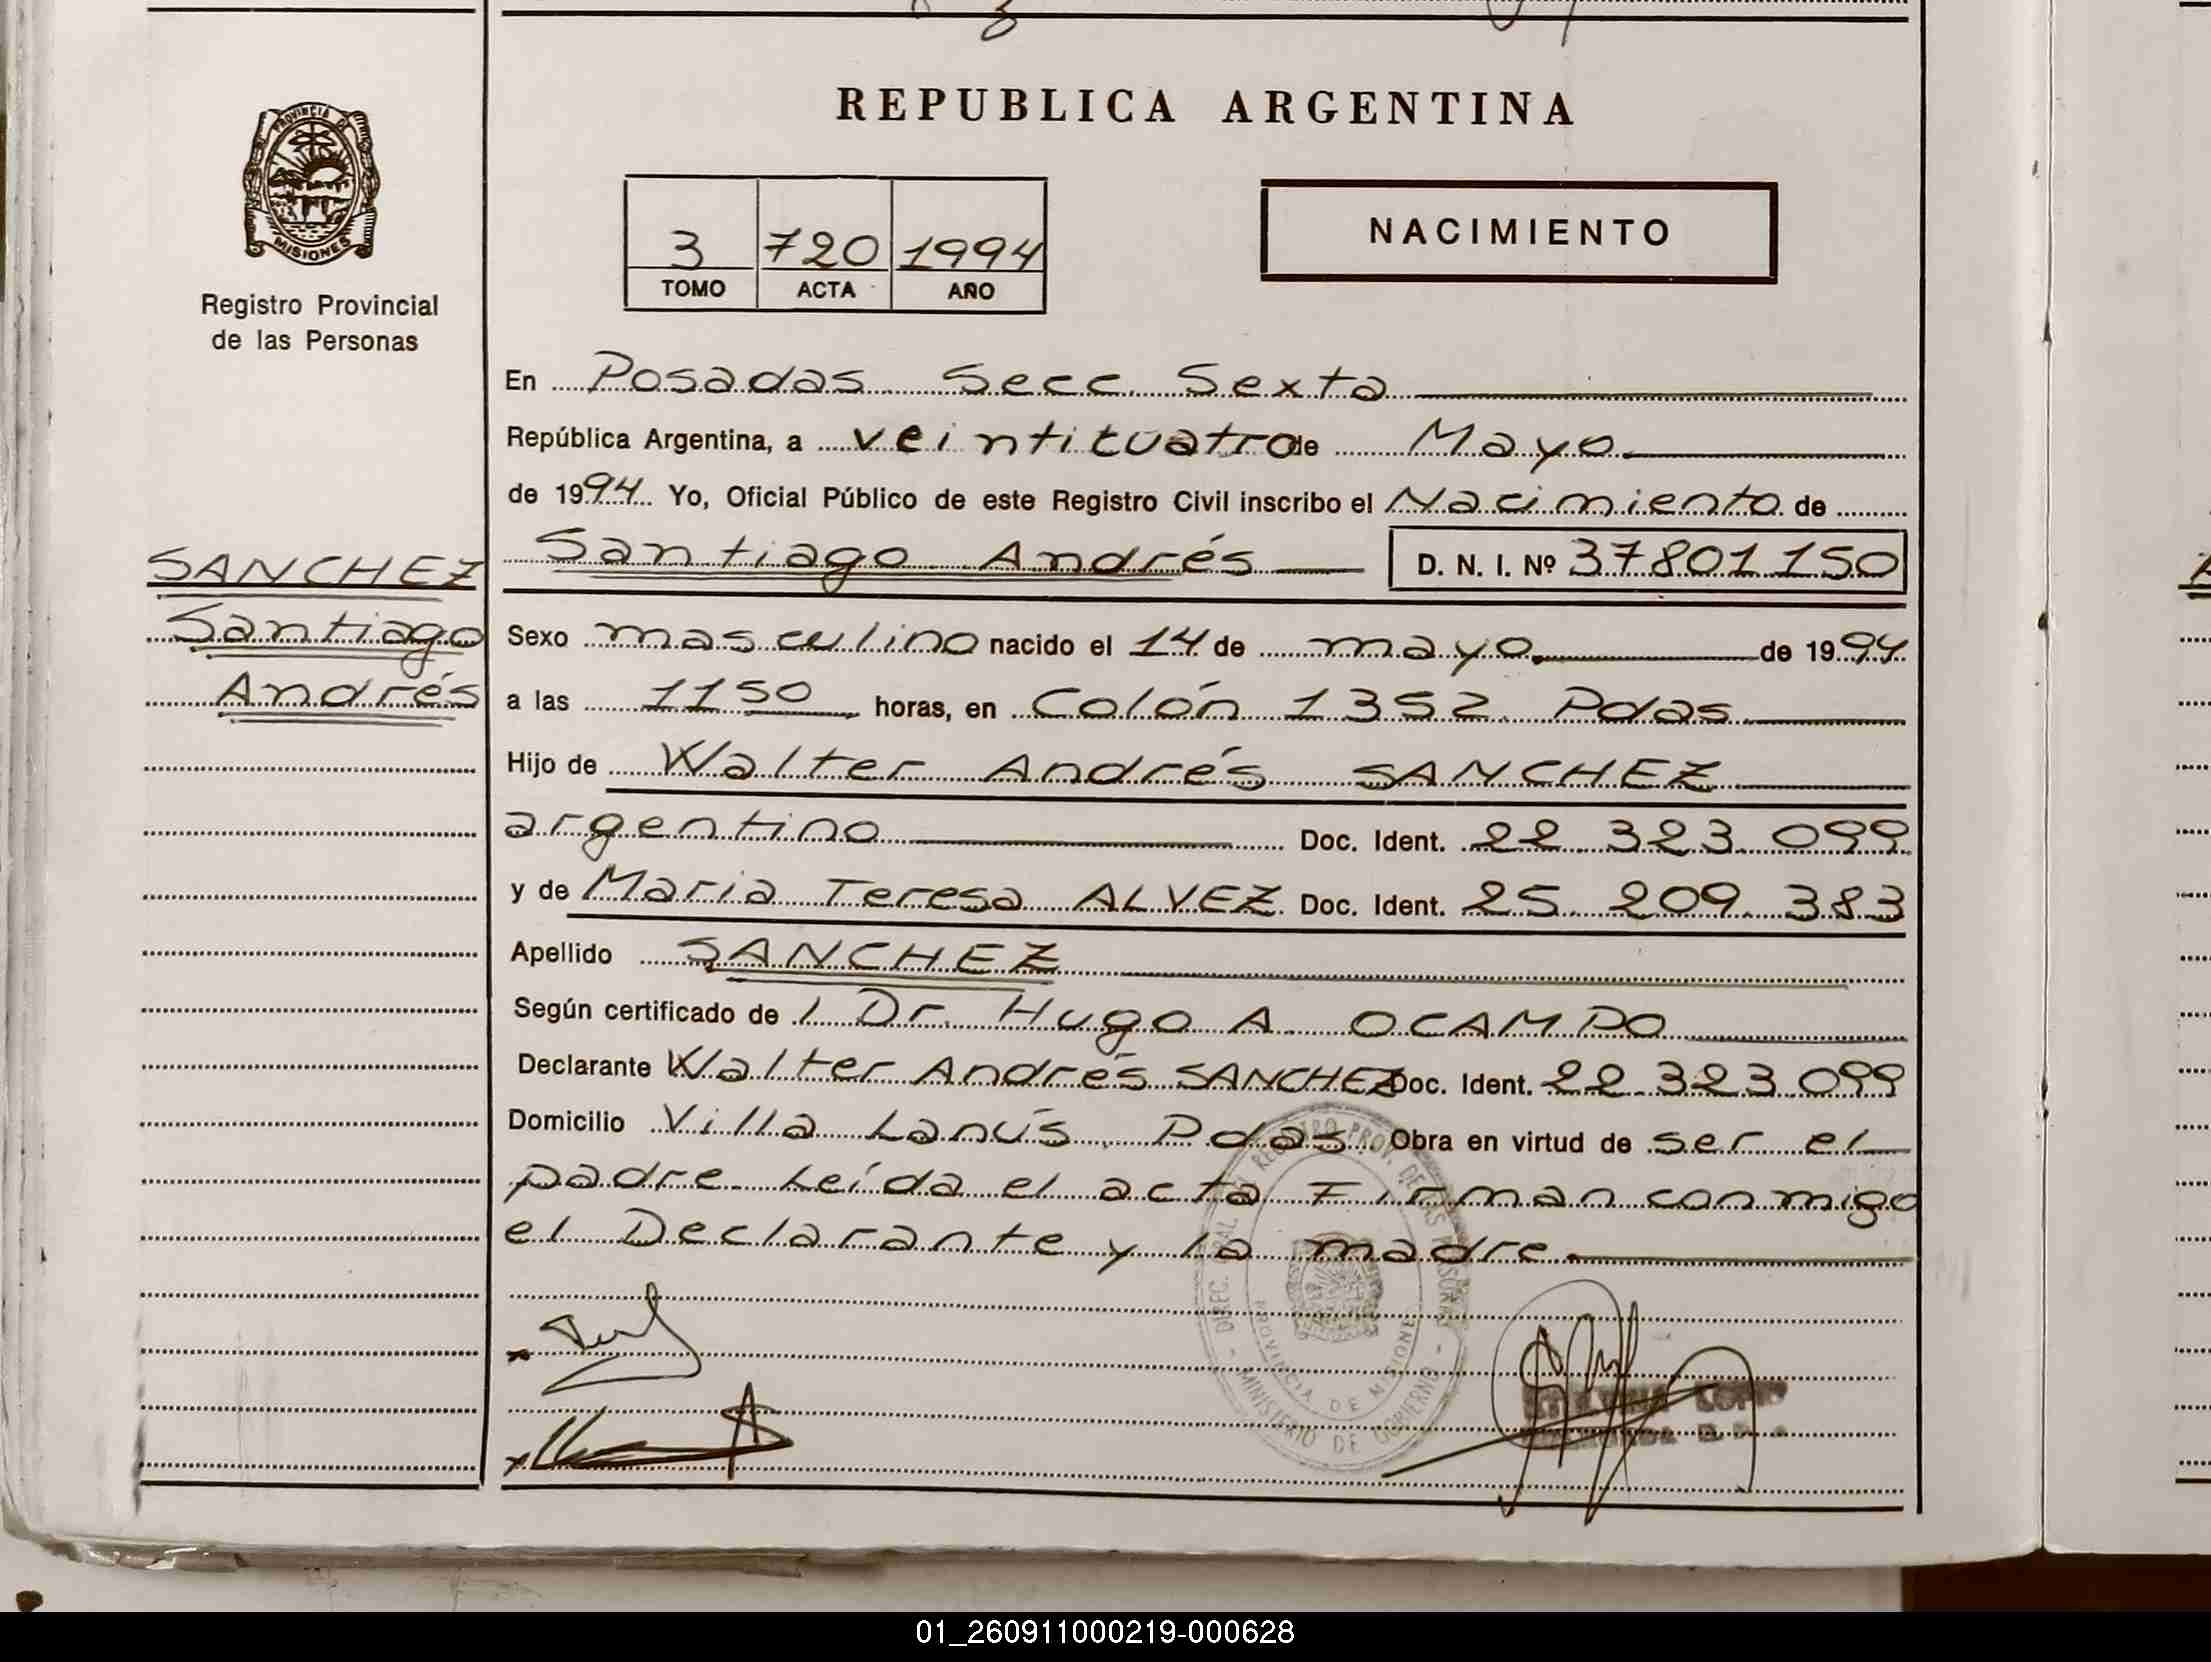 REPUBLICA ARGENTINA
PROVINCIA DE
MISIONES
Registro Provincial
de las Personas
3 720 1994
TOMO ACTA AÑO
NACIMIENTO
En Posadas Secc. Sexta
República Argentina, a veinticuatro de Mayo
de 1994 Yo, Oficial Público de este Registro Civil inscribo el Nacimiento de
Santiago Andrés D. N. I. Nº 37801150
SANCHEZ
Santiago
Andrés
Sexo masculino nacido el 14 de mayo de 1994
a las 11 50 horas, en Colón 1352 Pdas
Hijo de Walter Andrés SANCHEZ
argentino Doc. Ident. 22.323.099
y de Maria Teresa ALVEZ Doc. Ident. 25.209.383
Apellido SANCHEZ
Según certificado de l Dr. Hugo A. OCAMPO
Declarante Walter Andrés SANCHEZ Doc. Ident. 22.323.099
Domicilio Villa Lanús. Pdas. Obra en virtud de ser el
padre. Leída el acta Firman conmigo
el Declarante y la madre.
REGISTRO PROV. DE LAS PERSONAS
PROVINCIA DE MISIONES
MINISTERIO DE GOBIERNO
01_260911000219-000628